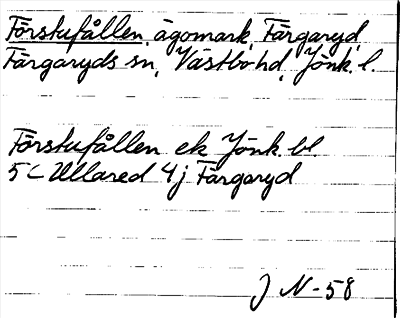 Förstufållen, ägomark, Färgaryd,
Färgaryds sn, Västbo hd, Jönk. l.
Förstufållen ek Jönk. bl.
5C Ullared 4j Färgaryd
J N-58